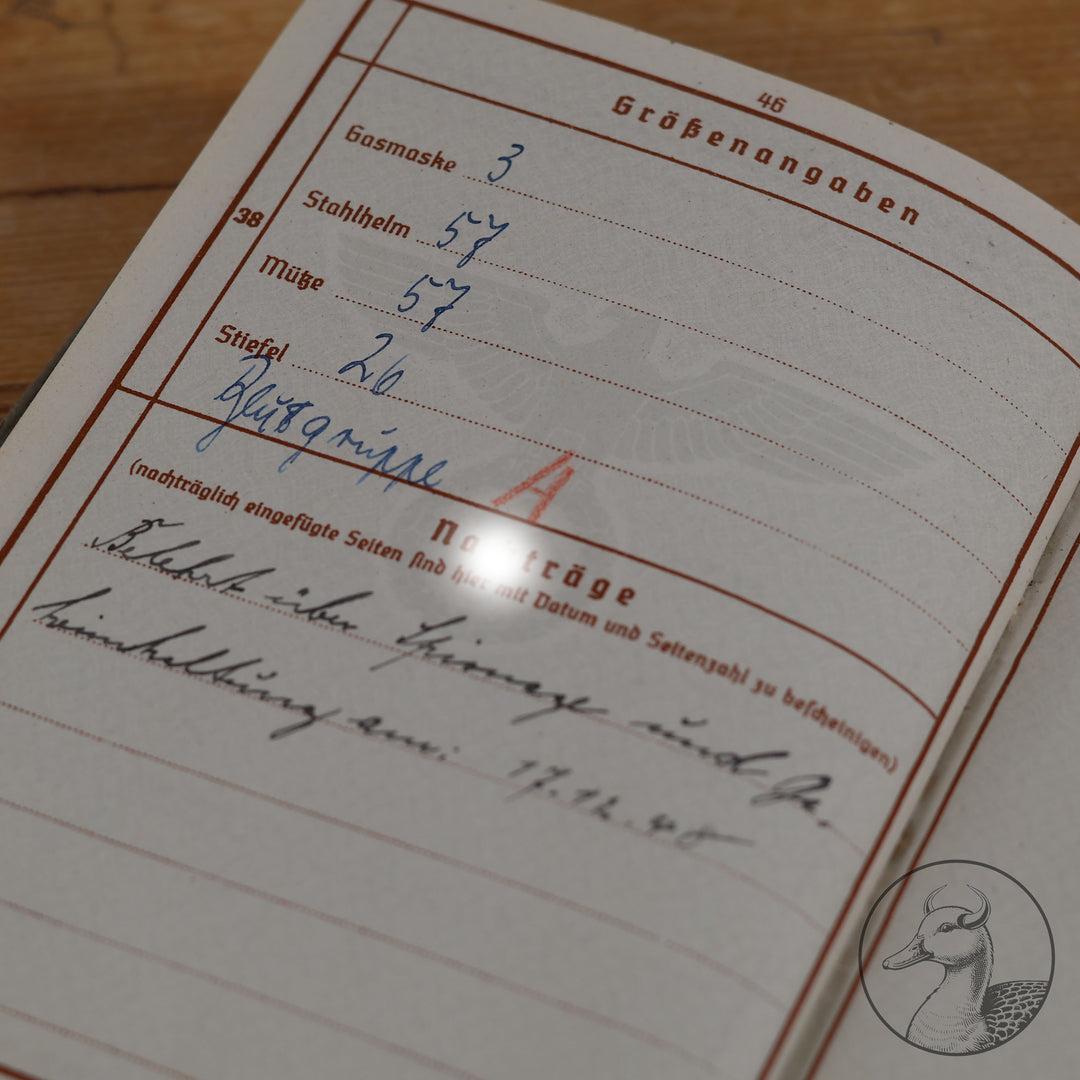 46
Größenangaben
Gasmaske 3
38
Stahlhelm 57
Mütze 57
Stiefel 26
Blutgruppe A
Nachträge
(nachträglich eingefügte Seiten sind hier mit Datum und Seitenzahl zu bescheinigen)
Belehrt über Spionage und Ge-
heimhaltung am: 17.12.